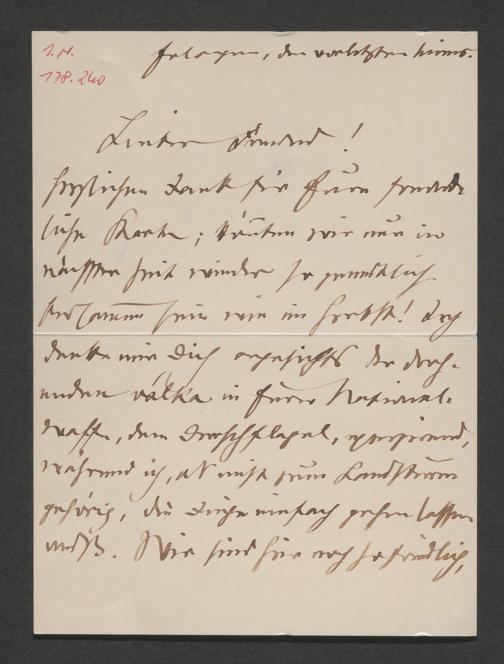 J.N.
178.240
Erlangen, den vorletzten
Lieber Freund!
Herzlichen Dank für Eure freund-
liche Karte; könnten wir nur in
nächster Zeit wieder so gemütlich
zusammen sein wie im Herbst! Ich
denke mir Dich angesichts der droh-
enden válka in Eurer National-
waffe, dem Dreschflegel, exerzierend,
während ich, als nicht zum Landsturm
gehörig, die Dinge einfach gehen lassen
muß. Wir sind hier noch so friedlich,